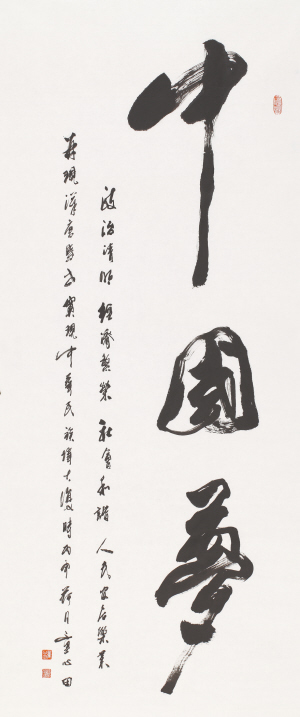 中國夢
政治清明 經濟繁榮 社會和諧 人民安居樂業
再現漢唐盛世 實現中華民族偉大復興 時丙申荷月